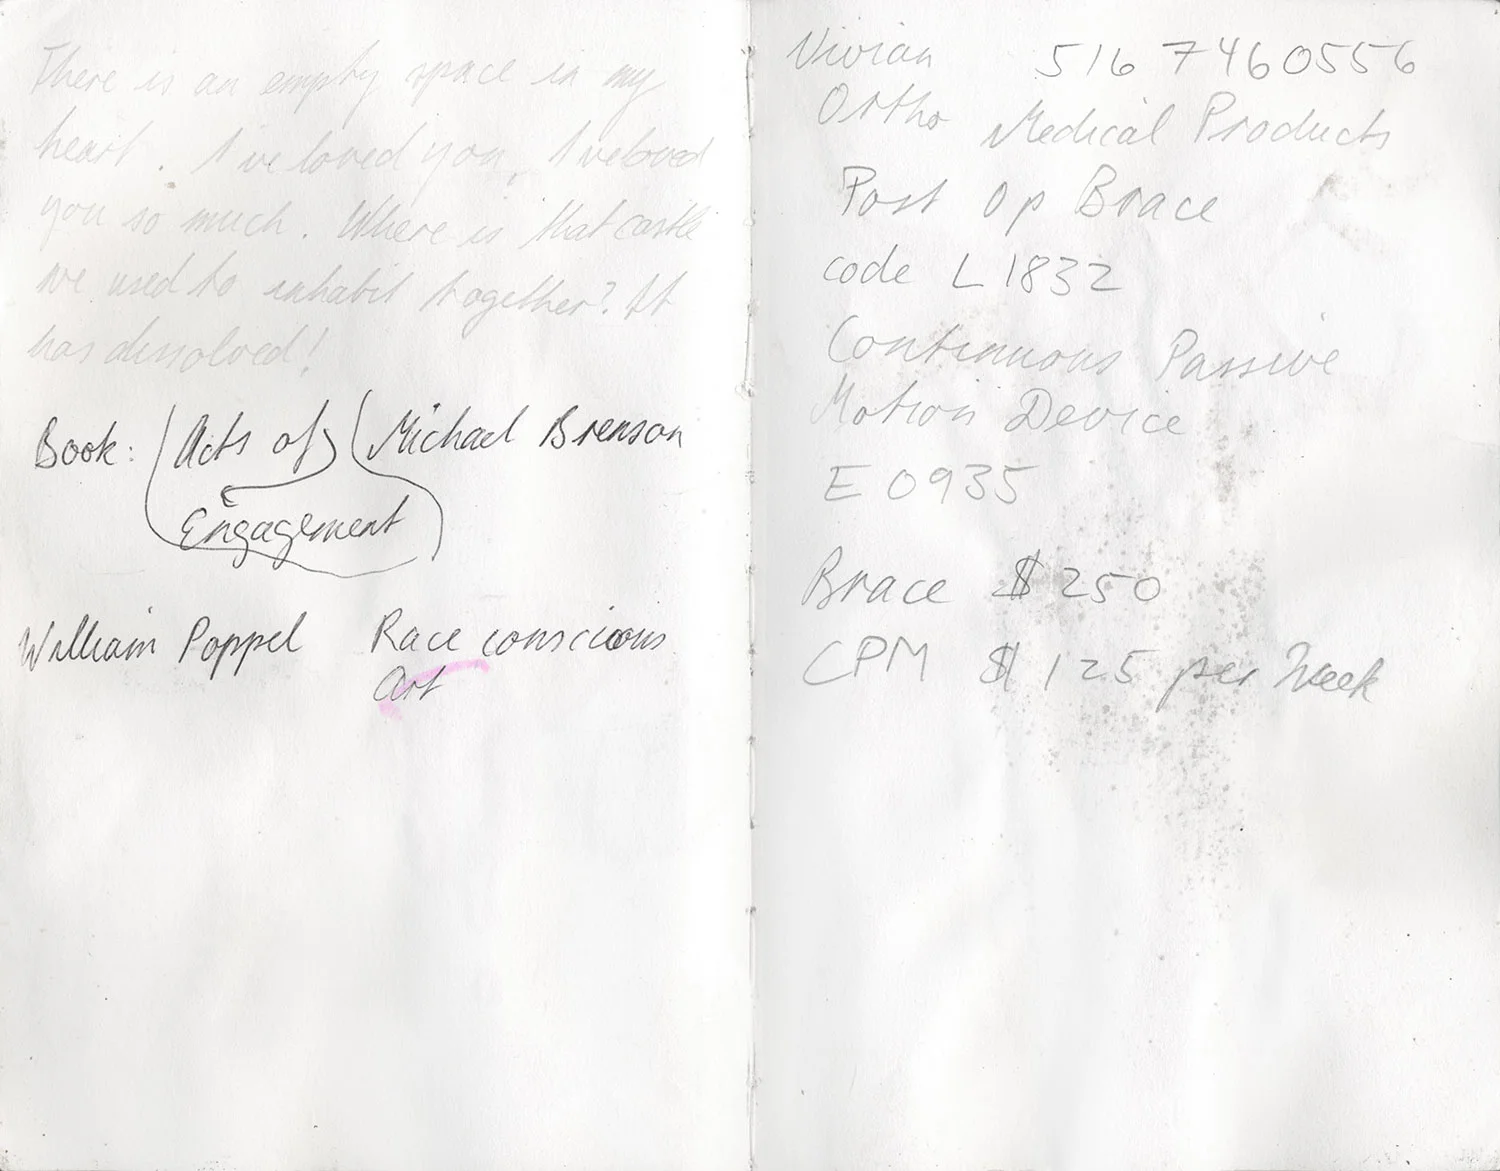 There is an empty space in my
heart. I've loved you, I've loved
you so much. Where is that castle
we used to inhabit together? It
has dissolved!
Book: Acts of Michael Brenson
Engagement
William Poppel Race conscious
Art
Vivian 516 7460556
Ortho Medical Products
Post Op Brace
code L1832
Continuous Passive
Motion Device
E0935
Brace $250
CPM $125 per Week